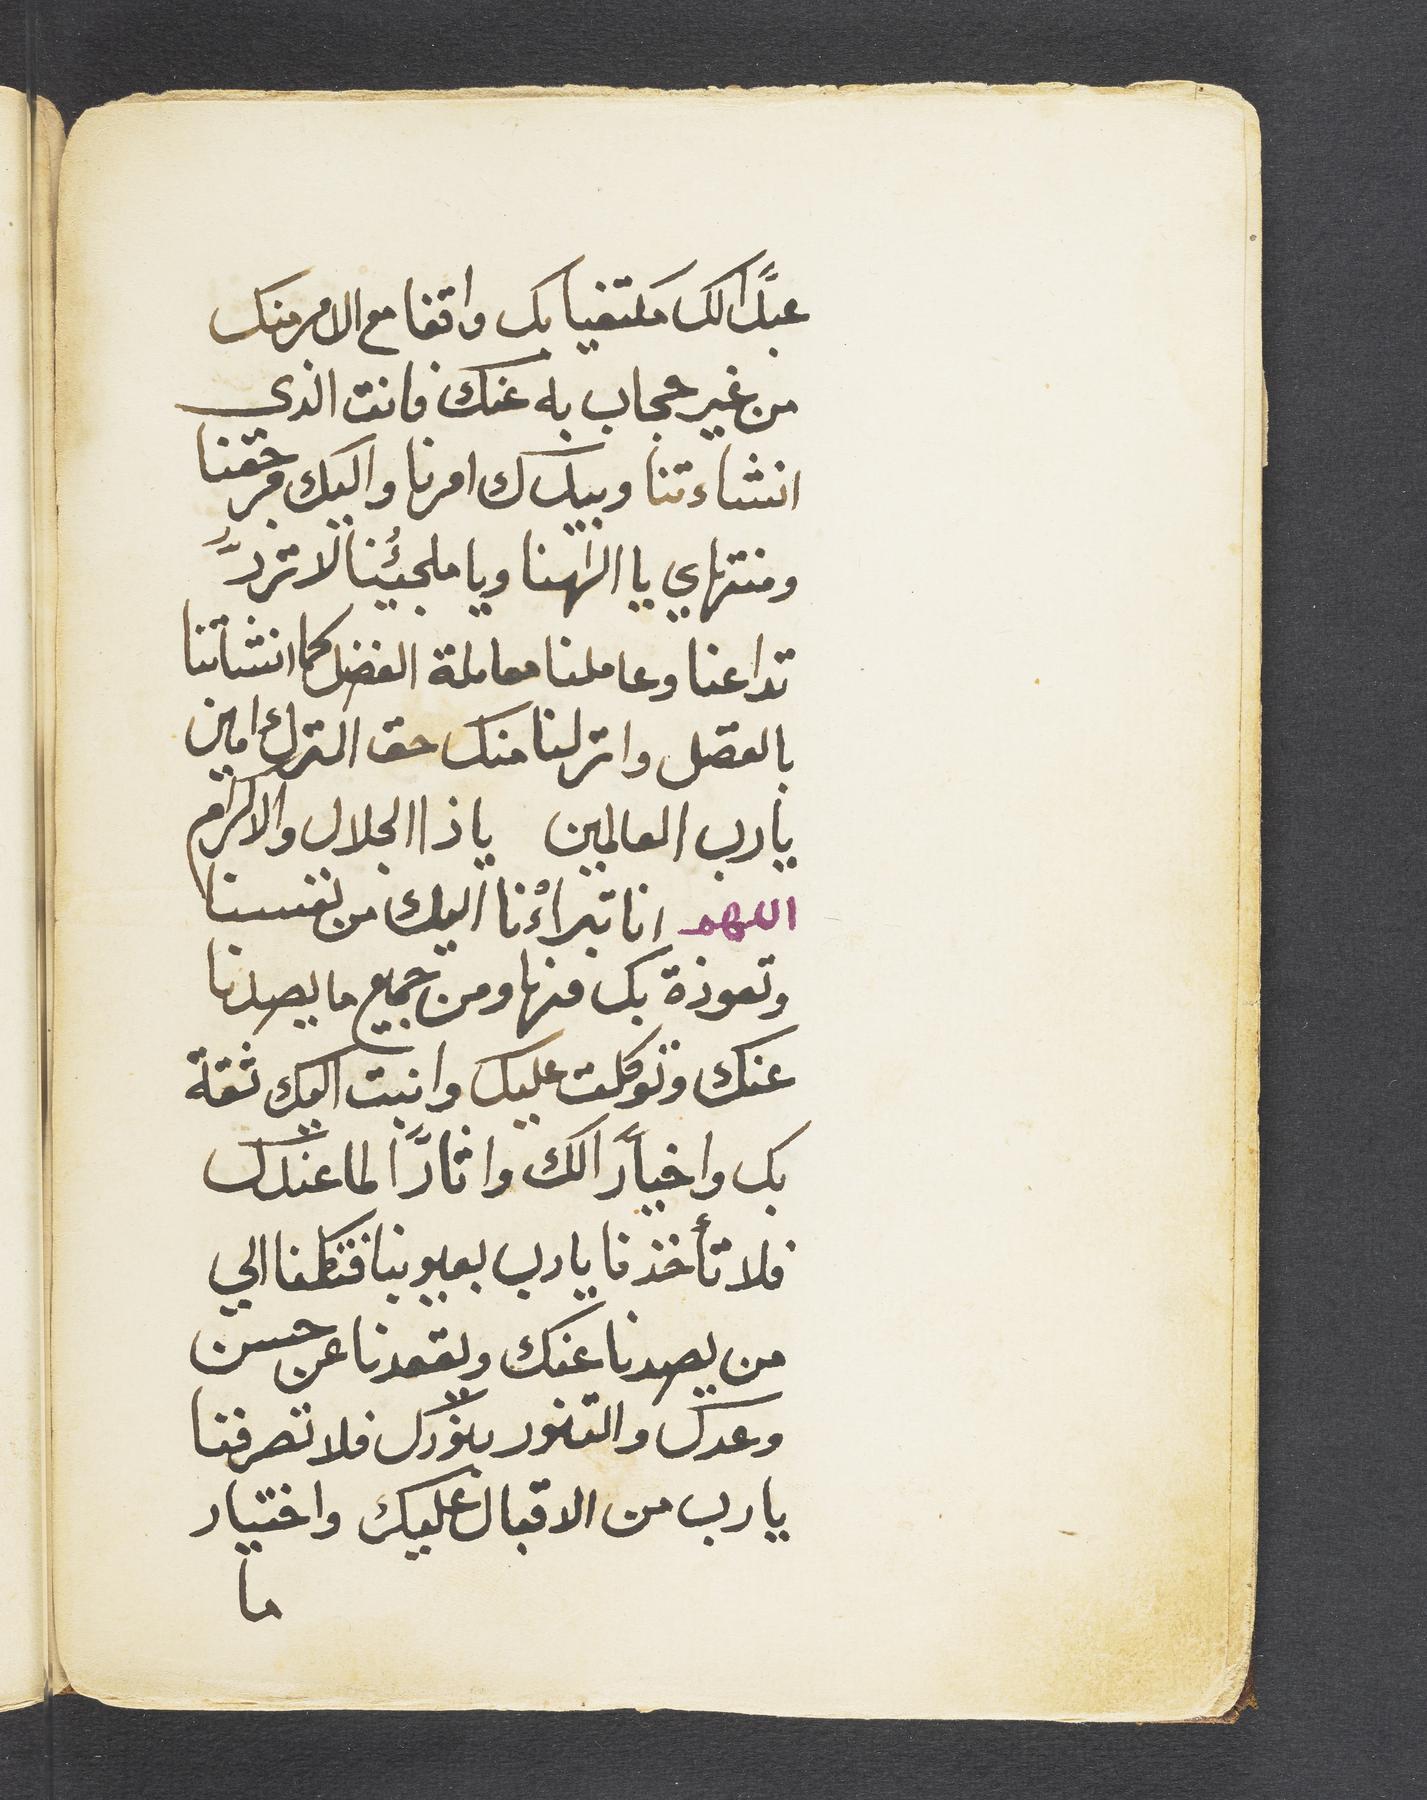 عبدًا لك مكتفيا بك واقفا مع الامر منك
من غير حجاب به عنك فانت الذي
انشاءتنا وبيدك امرنا واليك مرجعنا
ومنتهاي يا الهنا ويا ملجئنا لا تردَّ
تداعنا وعاملنا معاملة الفضل كما انشأتنا
بالفضل وانزلنا منك حق النزل امين
يارب العالمين ياذا الجلال والاكرام
اللهم انا تبراءنا اليك من نفسنا
وتعوذة بك منها ومن جميع ما يصدنا
عنك وتوكلت عليك وانبت اليك ثقة
بك واخيارًا لك واثارًا لما عندك
فلا تأخذنا يارب بعيوبنا فتكلنا الي
من يصدنا عنك ويقعدنا عن حسن
وعدك والتنور بنورك فلا تصرفنا
يارب من الاقبال عليك واختيار
ما